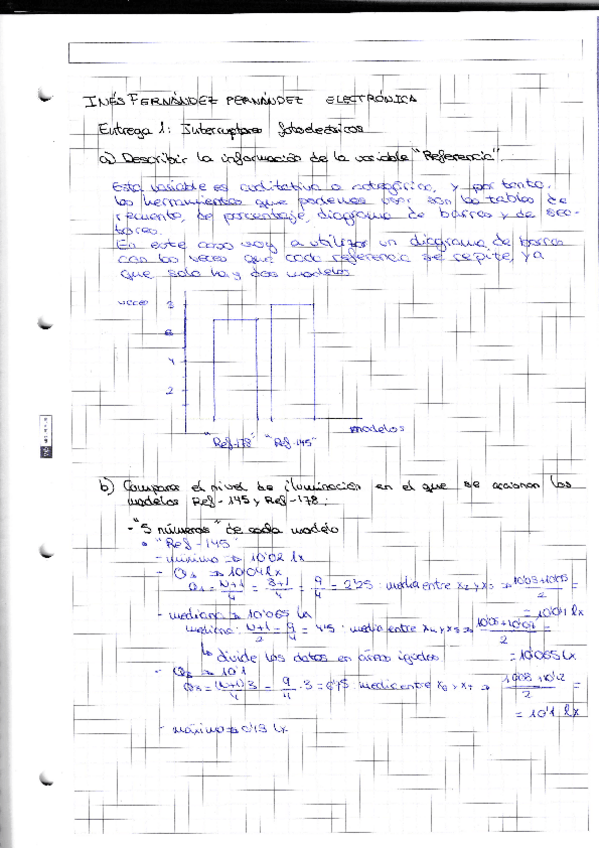 INÉS FERNÁNDEZ FERNÁNDEZ ELECTRÓNICA
Entrega 1: Interruptores fotoeléctricos
a) Describir la información de la variable "Referencia".
Esta variable es cualitativa o categórica, y por tanto,
las herramientas que podemos usar son las tablas de
recuento, de porcentaje, diagrama de barras y de sec-
tores.
En este caso voy a utilizar un diagrama de barras
con las veces que cada referencia se repite, ya
que solo hay dos modelos
veces
8
6
4
2
modelos
"Ref-178" "Ref-145"
b) Comparar el nivel de iluminación en el que se accionan los
modelos Ref-145 y Ref-178:
- "5 números" de cada modelo
• "Ref-145"
- mínimo ⇒ 10'02 lx
- Q1 ⇒ 10'04 lx
Q1 = N+1/4 = 8+1/4 = 9/4 = 2'25 : media entre x2 y x3 ⇒ /2 =
= 10'04 lx
- mediana ⇒ 10'065 lx
mediana: N+1/2 = 9/2 = 4'5 : media entre x4 y x5 ⇒ /2 =
↳ divide los datos en áreas iguales = 10'065 lx
- Q3 ⇒ 10'1
Q3 = (N+1)·3/4 = 9/4 · 3 = : media entre x6 y x7 ⇒ 10'08 + 10'12/2 =
= 10'1 lx
- máximo ⇒ lx